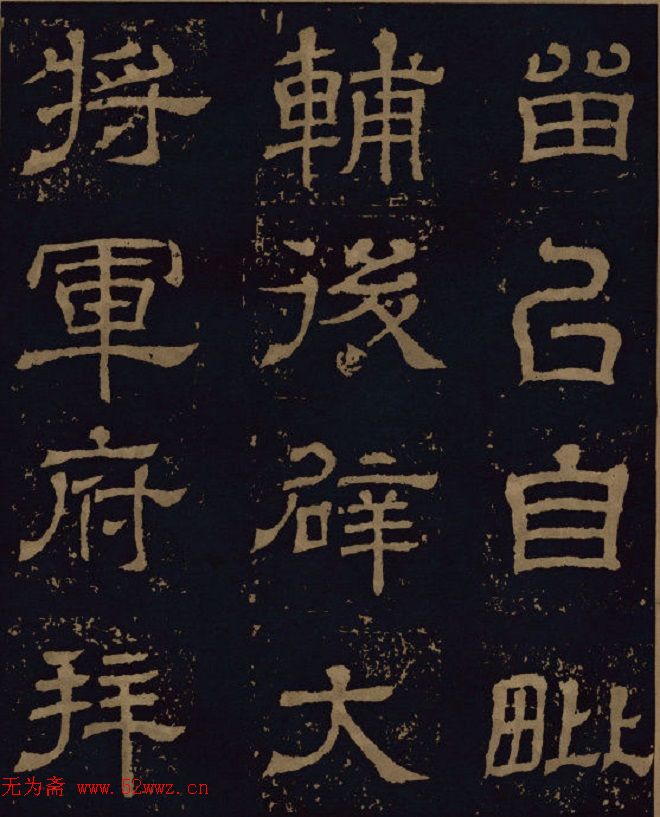 留㠯自毗
輔後辟大
將軍府拜
无为斋 www.52wwz.cn